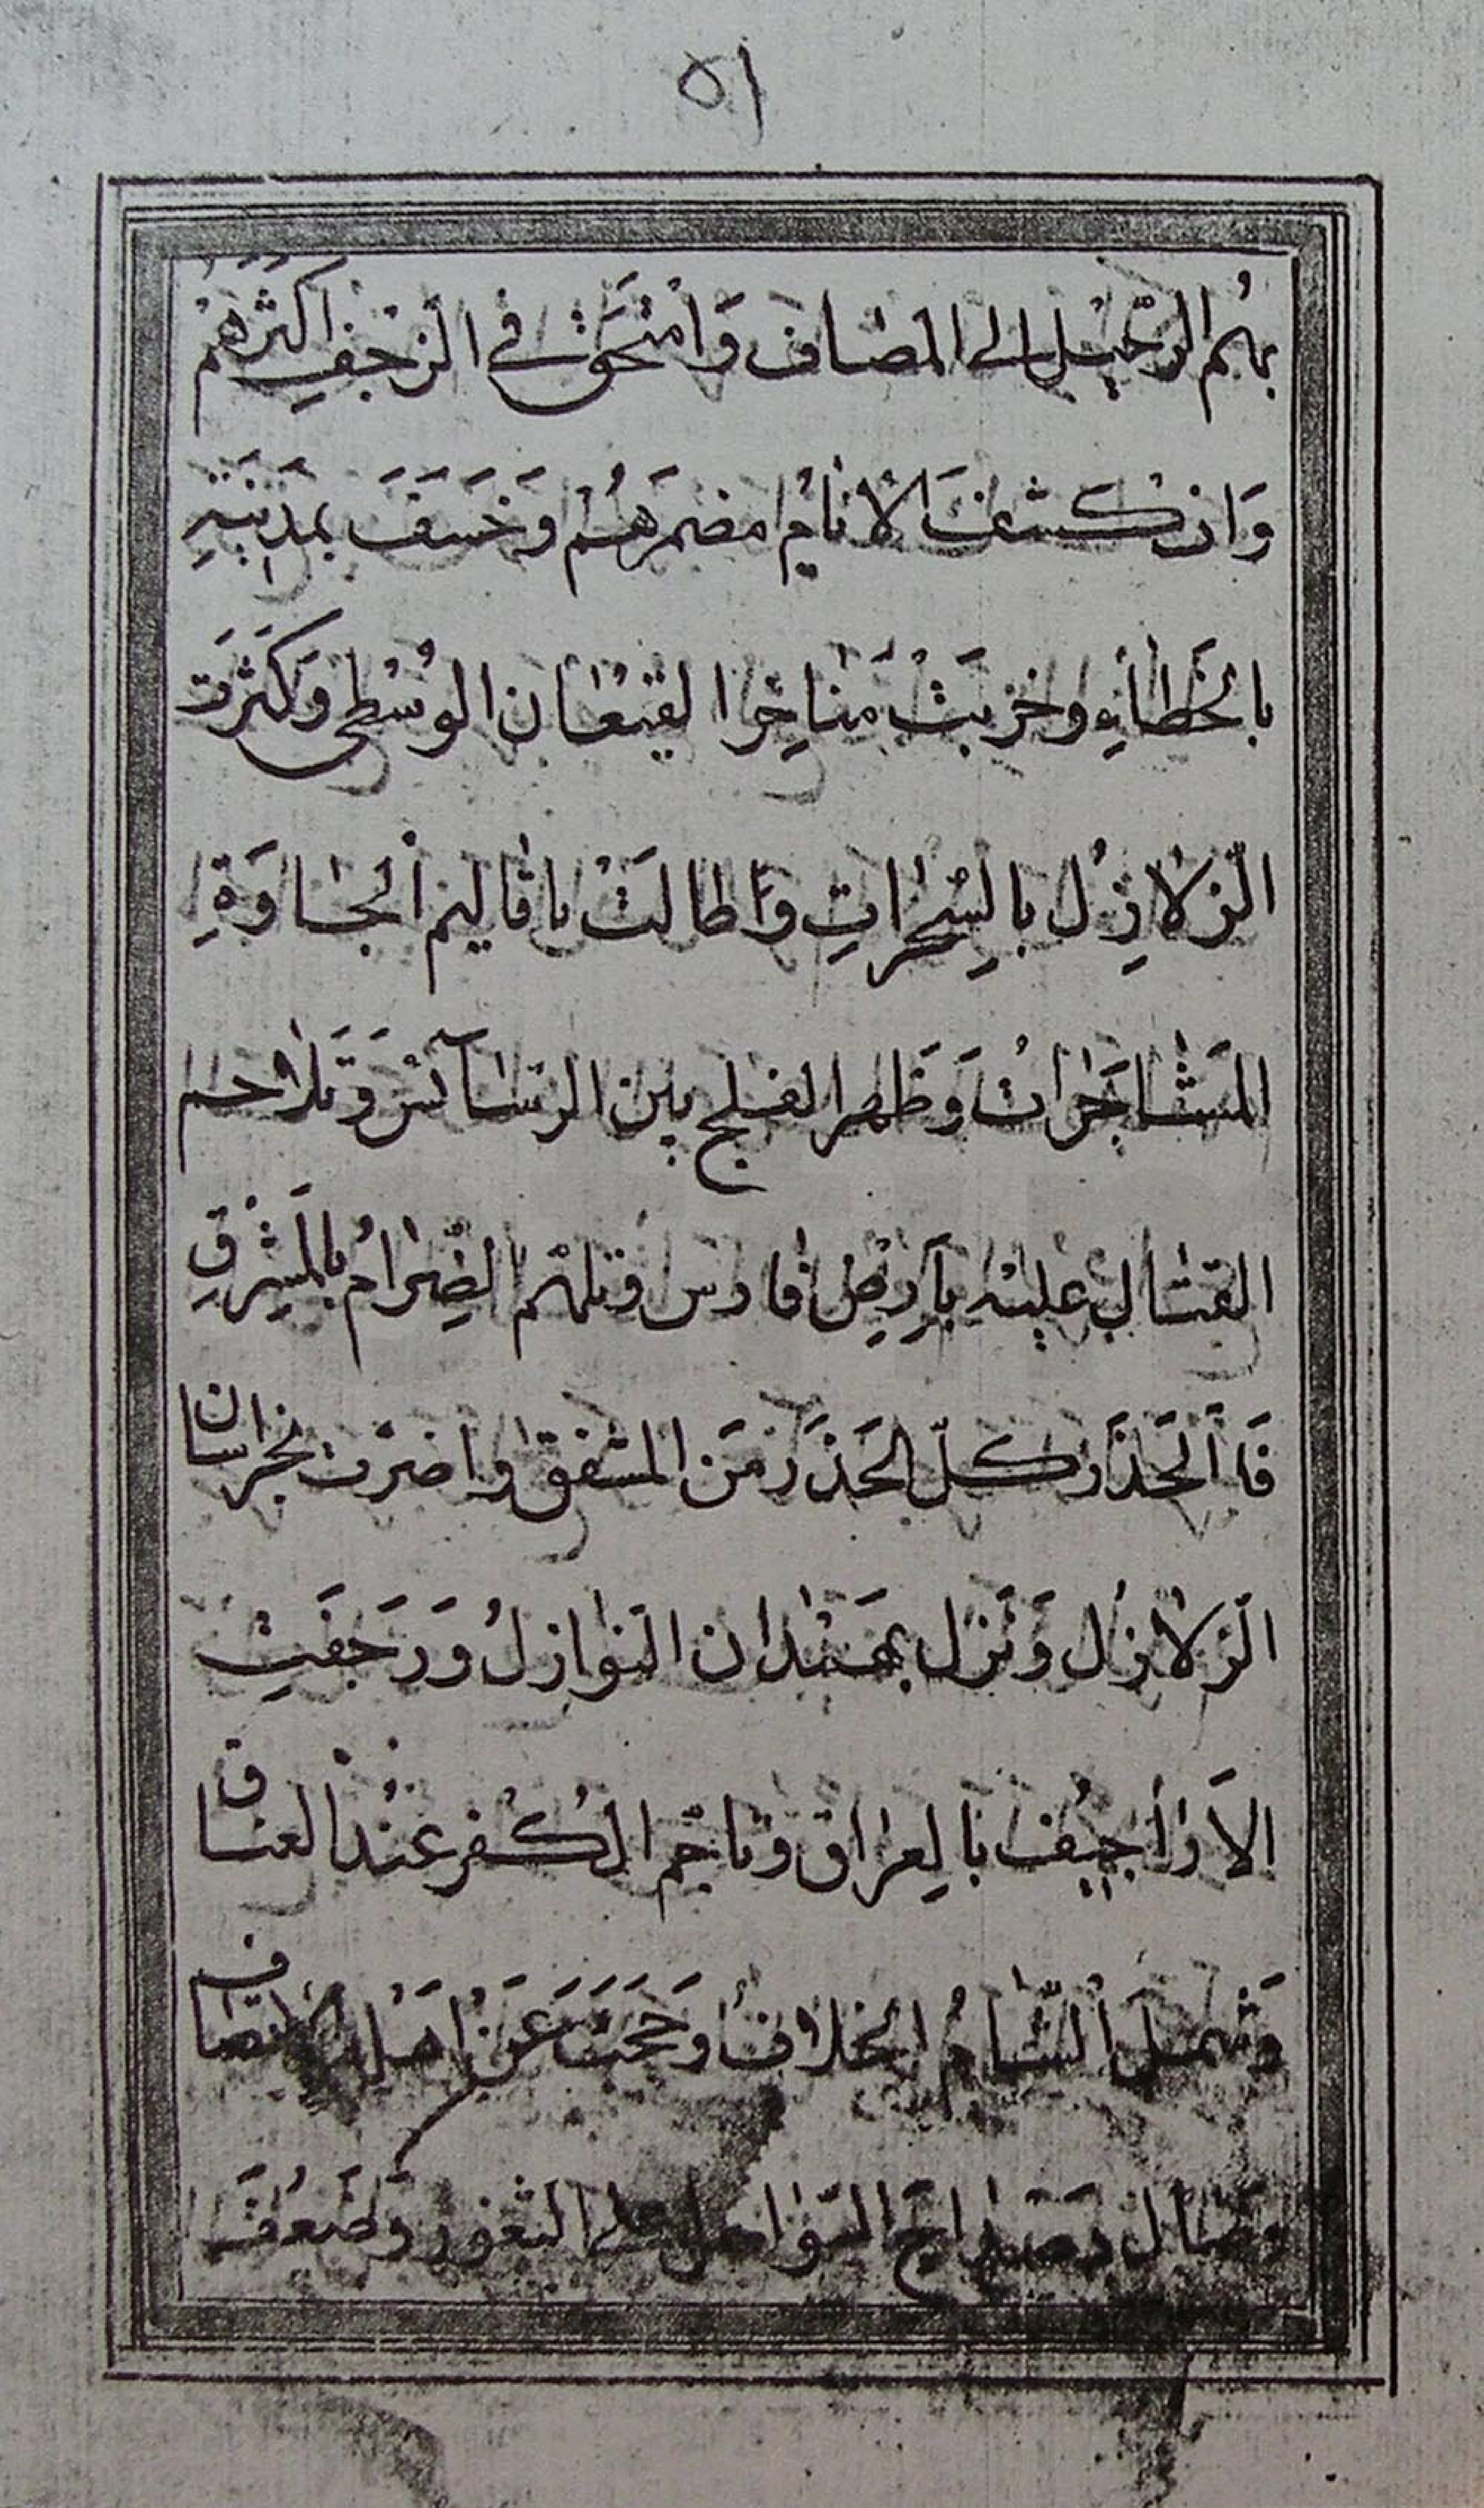 ٥١
بهم الرّحيل الى المصاف وَامتحق في الزحف اكثرَهُم
وَاذ كشفَ الانام مضمرَهُم وَخسَفَ بمدَينَتهِ
بالخَطَأيِ وخربَتْ مَنَاخِر القيعَان الوُسْطى وَكَثرَت
الزلازل بالسِحراتِ وَاطالَتْ باقاليم الجَاوَةِ
المشَاجَراتُ وَظَهر الفلج بين الرسَآئس وَتلاحم
القتال عليه بَأرضِ فارس وتلهّم الضِرَامُ بالمَشرِقِ
فَاَلحَذَر كلّ الحَذَر مَن المشفق واضرَت بخراسان
الزلازل وَنزل بهَمَدان النوازلُ وَرَجَفَتِ
الاَراَجِيف بالعِراق وناجم الكُفر عنُد العناق
وَشملَ الشامُ الخلافُ وَحَجَبَتَ عَنْ اهَل الانصاف
وصَال السّوَاحل على الثغور وَضَعُفَ